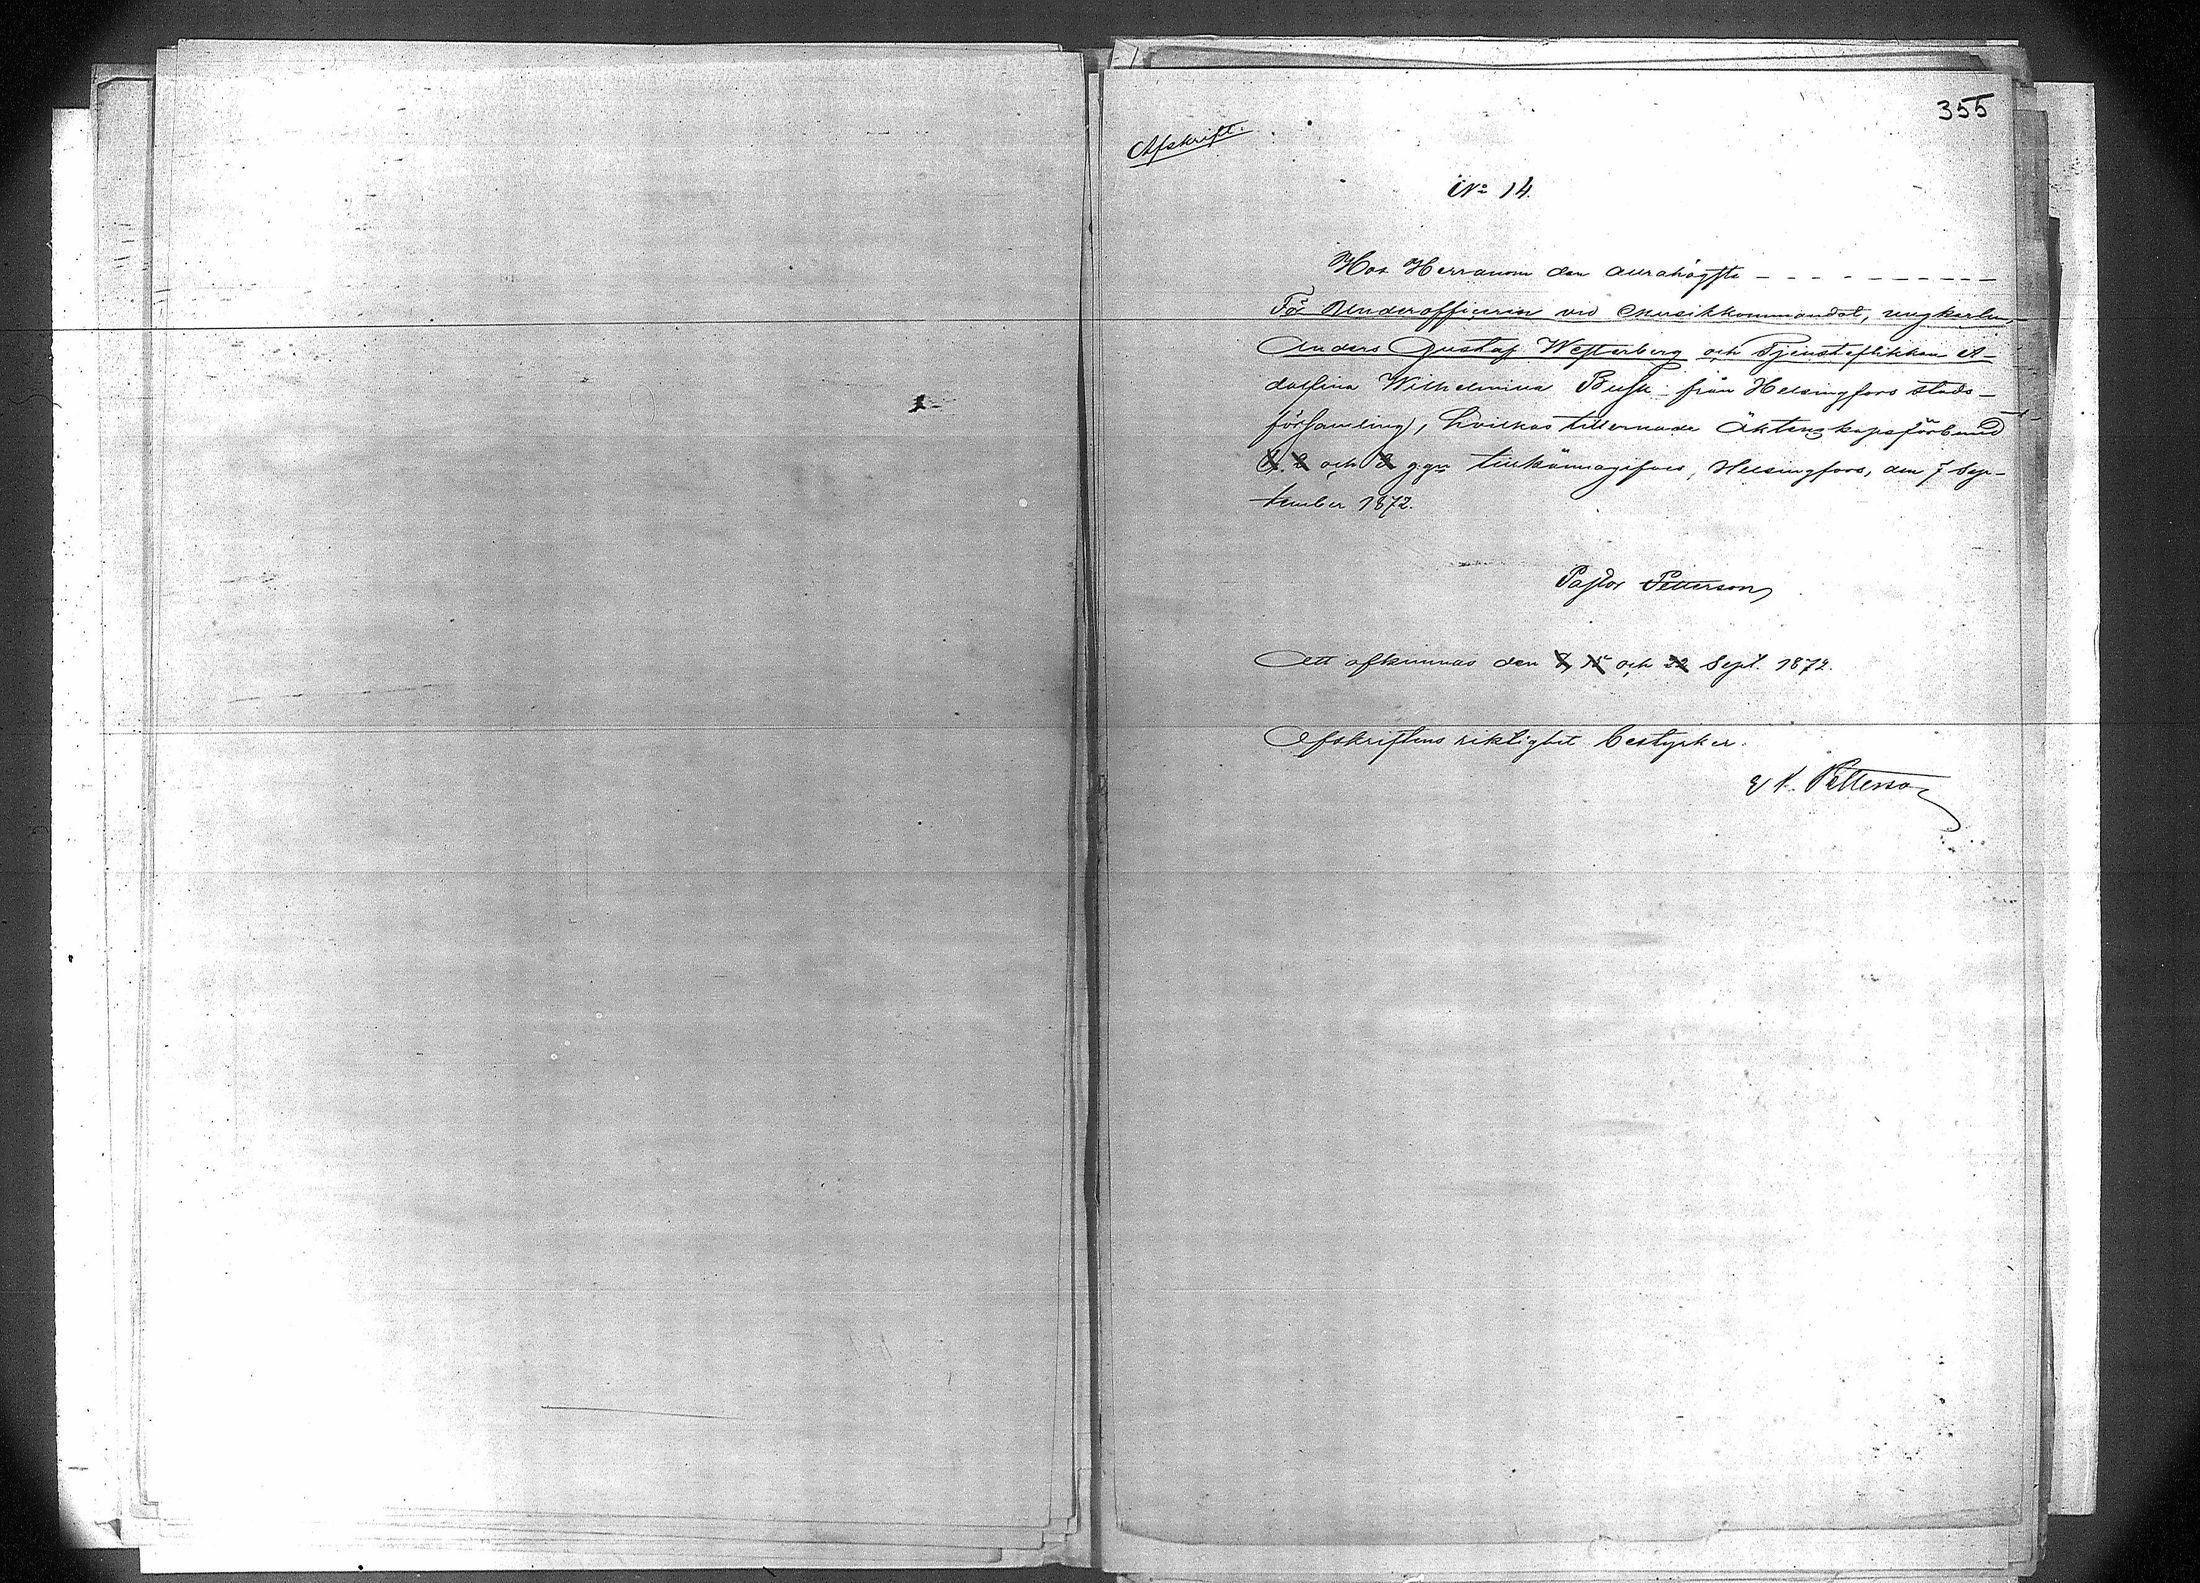 355
Afskrift.
No 14.
Hos Herranom den allrahögste
För Underofficeren vid Musikkommandot, ungkarlen,
Anders Gustaf Westerberg och Tjensteflickan A-
dolfina Wilhelmina Busk från Helsingfors stads-
församling, hvilkas tillernade Äktenskapsförbund
1, 2 och 3 ggn tillkännagifves, Helsingfors, den 7 Sep-
tember 1872.
Pastor Petterson
Att afkunnas den 8, 15 och 22 Sept. 1872.
Afskriftens riktighet bestyrker:
Petterson